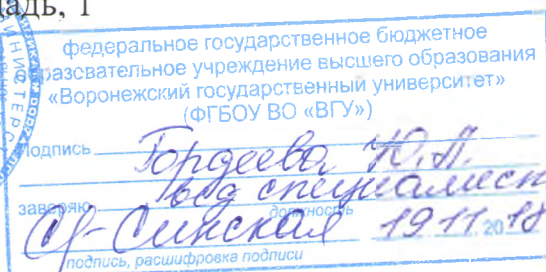 адь, 1
федеральное государственное бюджетное
образовательное учреждение высшего образования
«Воронежский государственный университет»
(ФГБОУ ВО «ВГУ»)
Подпись Гордеева Ю.А.
вед специалист
заверяю должность
Синская 19 11 2018
подпись, расшифровка подписи